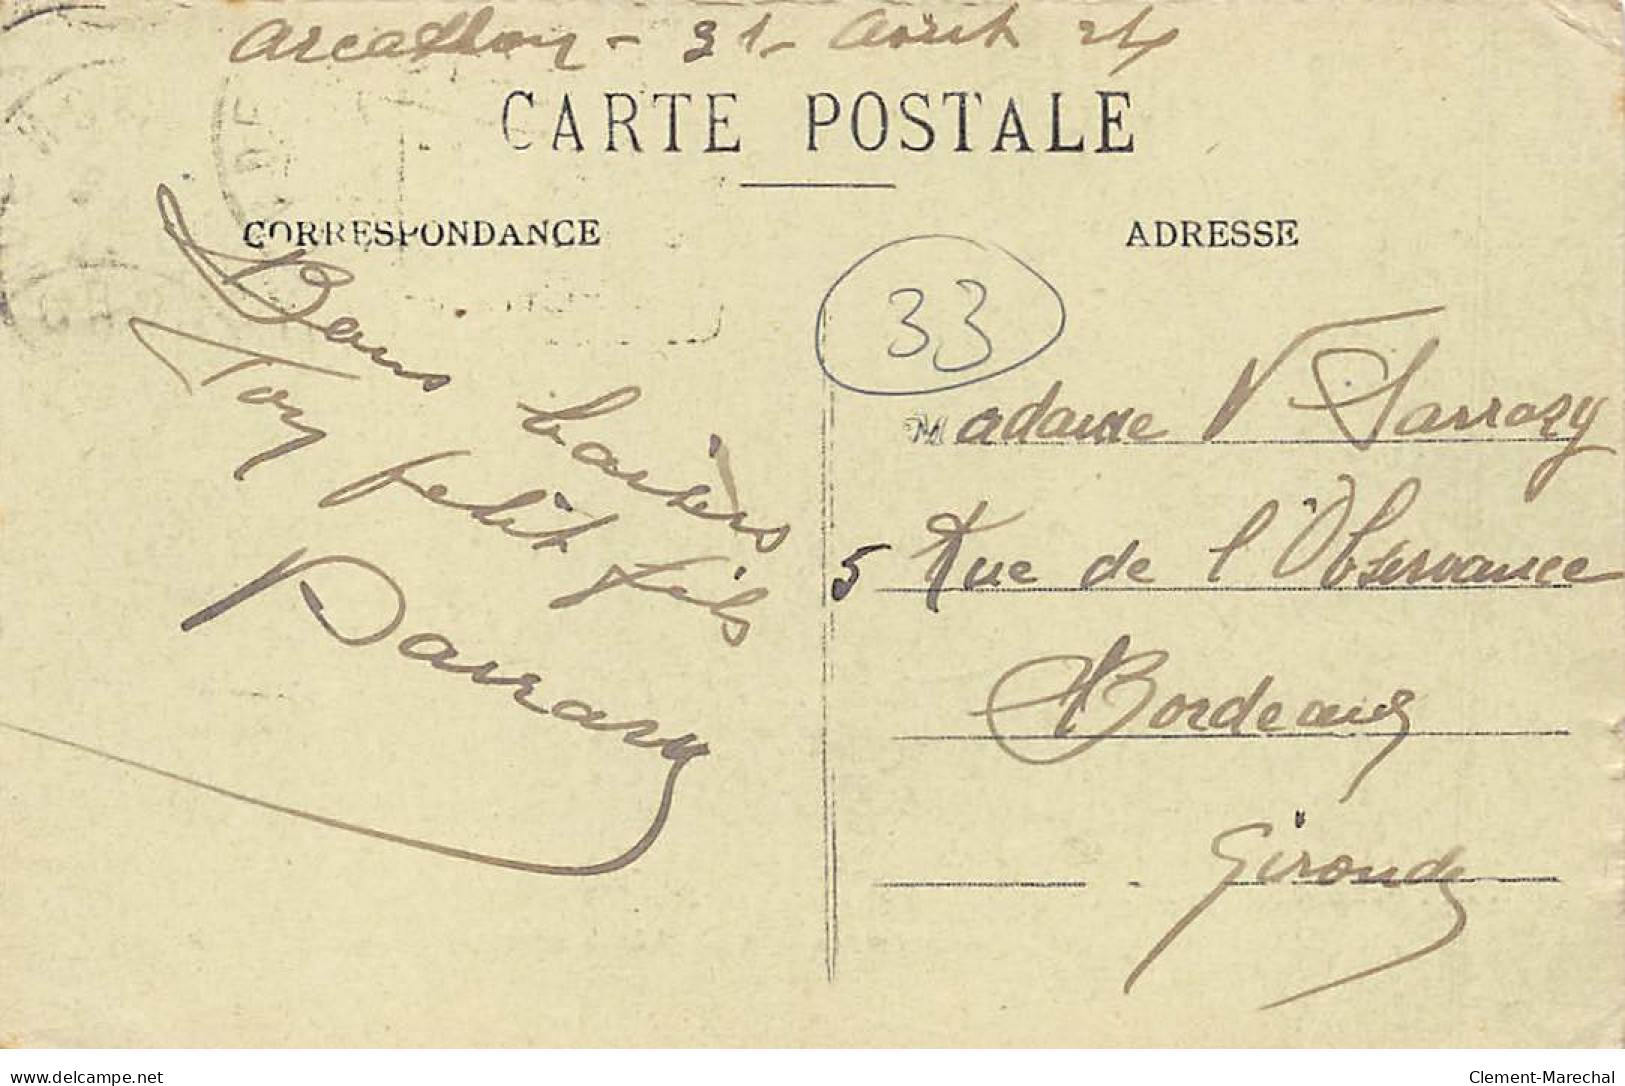 Arcachon - 31 Août 24
CARTE POSTALE
CORRESPONDANCE
ADRESSE
33
Bons baisers
Ton petit fils
Sarrazy
Madame V Sarrazy
5 Rue de l'Observance
Bordeaux
Gironde
delcampe.net
Clement-Marechal